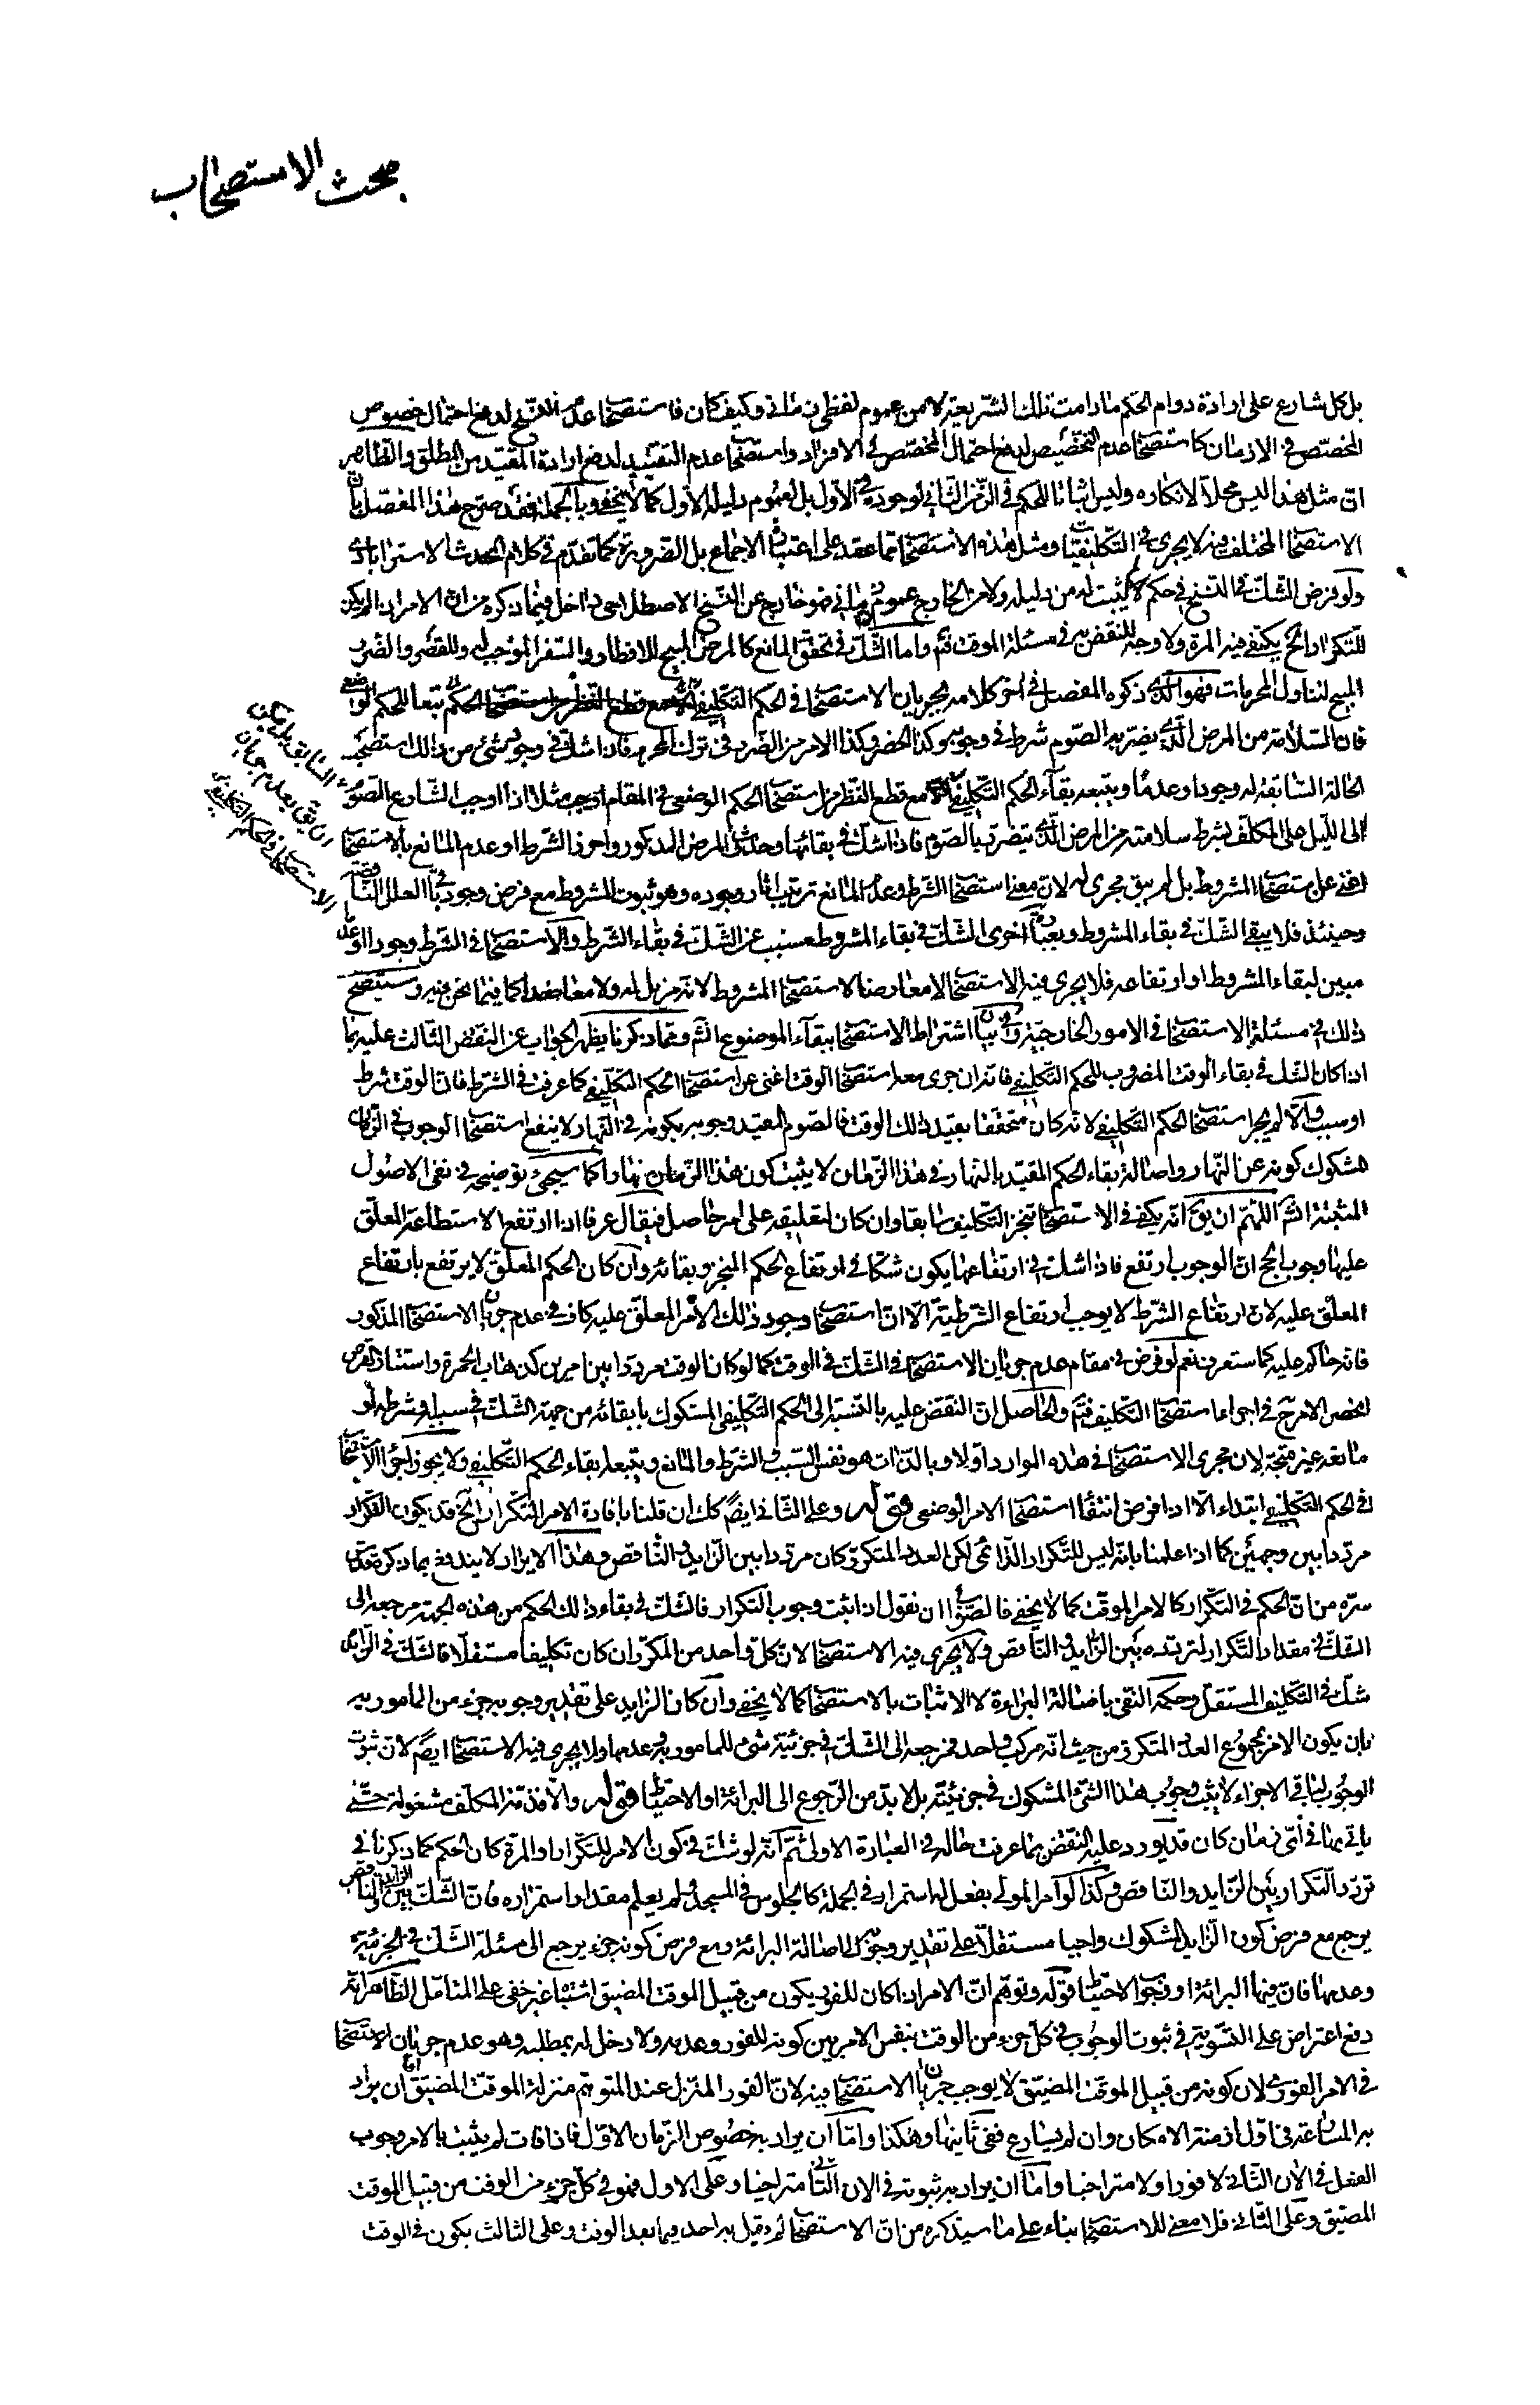 مبحث الاستصحاب
بل كل شارع على ارادة دوام الحكم ما دامت تلك الشريعة لا من عموم لفظى زمانى وكيف كان فاستصحاب عدم النسخ لدفع احتمال خصوص
المخصّص فى الازمان كاستصحاب عدم التخصيص لدفع احتمال المخصّص فى الافراد واستصحاب عدم التقييد لدفع ارادة المقيد من المطلق والظاهر
انّ مثل هذا ليس محلّا لانكاره وليس اثباتا للحكم فى الزمن الثانى لوجوده فى الأول بل لعموم دليله الاول كما لا يخفى وبالجملة فقد صرّح هذا المفصّل بانّ
الاستصحاب المختلف فيه لا يجرى فى التكليفيّات ومثل هذه الاستصحاب مما عقد على اعتباره الاجماع بل الضرورة كما تقدّم فى كلام المحدث الاسترابادى
ولو فرض الشكّ فى النسخ فى حكم لم يثبت له من دليله ولا من الخارج عموم زمانى فهو خارج عن النسخ الاصطلاحى داخل فيما ذكره من انّ الامر اذا لم يكن
للتكرار الخ يكتفى فيه المرة ولا وجه للنقض به فى مسئلة الموقت فتم واما الشّكّ فى تحقق المانع كالمرض المبيح للافطار والسفر الموجب له وللقصر والضرر
المبيح لتناول المحرمات فهو الذى ذكره المفصل فى اخر كلامه بجريان الاستصحاب فى الحكم التكليفى تبعا للحكم الوضعى
فان السلامة من المرض الذى يضرّ به الصوم شرط فى وجوبه وكذا الحضر وكذا الامن من الضرر فى ترك المحرم فاذا شكّ فى وجود شئ من ذلك استصحب
الحالة السّابقة له وجودا وعدما ويتبعه بقاء الحكم التكليفى السّابق بل يمكن
ان يق بعدم جريان
الاستصحاب فى الحكم التكليفى
مع قطع النظر من استصحاب الحكم الوضعى فى المقام مثلا اذا اوجب الشارع الصوم
الى الليل على المكلّف بشرط سلامته من المرض الذى يتضرر بالصوم فاذا شكّ فى بقائها وحدوث المرض المذكور واحرز الشرط او عدم المانع بالاستصحاب
اغنى عن استصحاب المشروط بل لم يبق مجرى له لانّ معنى استصحاب الشرط وعدم المانع ترتيب اثار وجوده وهو ثبوت المشروط مع فرض وجود باقى العلل الناقصة
وحينئذ فلا يبقى الشك فى بقاء المشروط وبعبارة اخرى الشكّ فى بقاء المشروط مسبب عن الشّكّ فى بقاء الشرط والاستصحاب فى الشرط وجودا او عدما
مبين لبقاء المشروط او ارتفاعه فلا يجرى فيه الاستصحاب لا معارضا لاستصحاب المشروط لانه مزيل له ولا معاضدا كما فيما نحن فيه وسيتضح
ذلك فى مسئلة الاستصحاب فى الامور الخارجية وفى بيان اشتراط الاستصحاب ببقاء الموضوع انشم ومما ذكرنا يظهر الجواب عن النقض الثالث عليه بما
اذا كان الشكّ فى بقاء الوقت المضروب للحكم التكليفى فانه ان جرى معه استصحاب الوقت اغنى عن استصحاب الحكم التكليفى كما عرفت فى الشرط فان الوقت شرط
او سبب والّا لم يجر استصحاب الحكم التكليفى لانه كان متحققا بقيد ذلك الوقت فالصوم المقيد وجوبه بكونه فى النهار لا ينفع استصحاب الوجوب فى الزمان
المشكوك كونه من النهار واصالة بقاء الحكم المقيد بالنهار فى هذا الزمان لا يثبت كون هذا الزمان نهارا كما سيجئ توضيحه فى نفى الاصول
المثبتة انشم اللهم ان يق انه يكفى فى الاستصحاب تنجز التكليف سابقا وان كان لتعليقه على امر حاصل فيقال عرفا اذا ارتفع الاستطاعة المعلّق
عليها وجوب الحج انّ الوجوب ارتفع فاذا شكّ فى ارتفاعها يكون شكّا فى ارتفاع الحكم المنجز وبقائه وان كان الحكم المعلّق لا يرتفع بارتفاع
المعلّق عليه لان ارتفاع الشّرط لا يوجب ارتفاع الشرطية الّا انّ استصحاب وجود ذلك الامر المعلّق عليه كاف فى عدم جريان الاستصحاب المذكور
فانه حاكم عليه كما ستعرف نعم لو فرض فى مقام عدم جريان الاستصحاب فى الشكّ فى الوقت كما لو كان الوقت مرددا بين امرين كذهاب الحمرة واستتار القرص
انحصر الامر ح فى اجراء استصحاب التكليف فتم والحاصل انّ النقض عليه بالنسبة الى الحكم التكليفى المشكوك بابقائه من جهة الشك فى سببه او شرطه او
مانعه غير متجه لان مجرى الاستصحاب فى هذه الموارد اولا وبالذات هو نفس السبب والشرط والمانع ويتبعه بقاء الحكم التكليفى ولا يجوز اجراء الاستصحاب
فى الحكم التكليفى ابتداء الا اذا فرض انتفاء استصحاب الامر الوضعى قوله وعلى الثانى ايضا كك ان قلنا بافادة الامر التكرار الخ قد يكون التكرار
مردّدا بين وجهين كما اذا علمنا بانه ليس للتكرار الدائمى لكن العدد المتكرّر كان مردّدا بين الزايد والناقص وهذا الايراد لا يندفع بما ذكره قدّس
سرّه من انّ الحكم فى التكرار كالامر الموقت كما لا يخفى فالصواب ان نقول اذا ثبت وجوب التكرار فالشكّ فى بقاء ذلك الحكم من هذه الجهة مرجعه الى
الشك فى مقدار التكرار لتردده بين الزايد والناقص ولا يجرى فيه الاستصحاب لان كلّ واحد من المكرّر ان كان تكليفا مستقلا فالشكّ فى الزايد
شكّ فى التكليف المستقل وحكمه النفى باصالة البراءة لا الاثبات بالاستصحاب كما لا يخفى وان كان الزايد على تقدير وجوبه جزء من المامور به
بان يكون الامر بمجموع العدد المتكرّر من حيث انّه مركب واحد فمرجعه الى الشكّ فى جزئية شئ للمامور به وعدمها ولا يجرى فيه الاستصحاب ايضا لان ثبوت
الوجوب لباقى الاجزاء لا يثبت وجوب هذا الشئ المشكوك فى جزئيّته بل لا بد من الرجوع الى البرائة او الاحتياط قوله والّا فذمّة المكلّف مشغولة حتّى
ياتى بها فى اىّ زمان كان قد يورد عليه النقض بما عرفت حاله فى العبارة الاولى ثمّ انه لو شكّ فى كون الامر للتكرار او المرة كان الحكم كما ذكرنا فى
تردّد التكرار بين الزايد والناقص وكذا لو امر المولى بفعل له استمرار فى الجملة كالجلوس فى المسجد ولم يعلم مقدار استمراره فان الشكّ بين الزايد والناقص
يرجع مع فرض كون الزايد المشكوك واجبا مستقلّا على تقدير وجوبه الى اصالة البرائة ومع فرض كونه جزء يرجع الى مسئلة الشك فى الجزئية
وعدمها فان فيها البرائة او وجوب الاحتياط قوله وتوهّم انّ الامر اذا كان للفور يكون من قبيل الموقت المضيق اشتباه غير خفى على المتامل الظاهر انه
دفع اعتراض على التسوية فى ثبوت الوجوب فى كل جزء من الوقت بنفس الامر بين كونه للفور وعدمه ولا دخل له بمطلبه وهو عدم جريان الاستصحاب
فى الامر الفورى لان كونه من قبيل الموقت المضيق لا يوجب جريان الاستصحاب فيه لانّ الفور المنزل عند المتوهم منزلة الموقت المضيق اما ان يراد
به المسارعة فى اول ازمنة الامكان وان لم يسارع ففى ثانيها وهكذا واما ان يراد به خصوص الزمان الاول فاذا فات لم يثبت بالامر وجوب
الفعل فى الان الثانى لا فورا ولا متراخيا واما ان يراد به ثبوته فى الان الثانى متراخيا وعلى الاول فهو فى كل جزء من الوقت من قبيل الموقت
المضيق وعلى الثانى فلا معنى للاستصحاب بناء على ما سيذكره من انّ الاستصحاب لم يقل به احد فيما بعد الوقت وعلى الثالث يكون فى الوقت